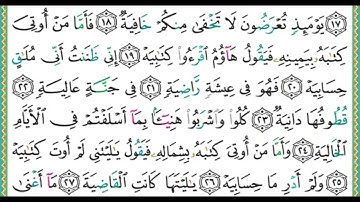 ١٧ يَوْمَئِذٍ تُعْرَضُونَ لَا تَخْفَىٰ مِنكُمْ خَافِيَةٌ ١٨ فَأَمَّا مَنْ أُوتِىَ
كِتَٰبَهُۥ بِيَمِينِهِۦ فَيَقُولُ هَآؤُمُ ٱقْرَءُوا۟ كِتَٰبِيَهْ ١٩ إِنِّى ظَنَنتُ أَنِّى مُلَٰقٍ
حِسَابِيَهْ ٢٠ فَهُوَ فِى عِيشَةٍ رَّاضِيَةٍ ٢١ فِى جَنَّةٍ عَالِيَةٍ ٢٢
قُطُوفُهَا دَانِيَةٌ ٢٣ كُلُوا۟ وَٱشْرَبُوا۟ هَنِيٓـًٔۢا بِمَآ أَسْلَفْتُمْ فِى ٱلْأَيَّامِ
ٱلْخَالِيَةِ ٢٤ وَأَمَّا مَنْ أُوتِىَ كِتَٰبَهُۥ بِشِمَالِهِۦ فَيَقُولُ يَٰلَيْتَنِى لَمْ أُوتَ كِتَٰبِيَهْ
٢٥ وَلَمْ أَدْرِ مَا حِسَابِيَهْ ٢٦ يَٰلَيْتَهَا كَانَتِ ٱلْقَاضِيَةَ ٢٧ مَآ أَغْنَىٰ